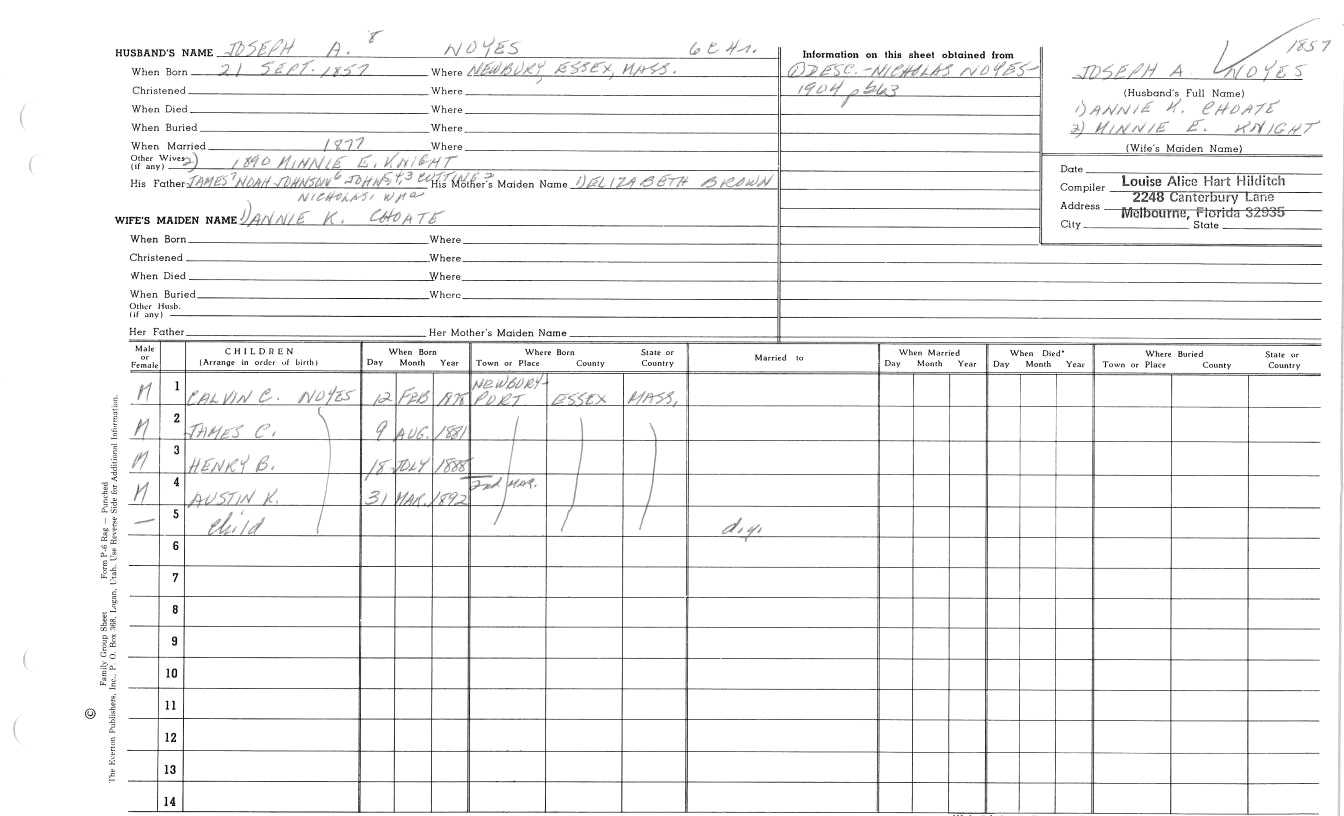 HUSBAND'S NAME JOSEPH A. 8 NOYES
When Born 21 SEPT. 1857 Where NEWBURY, ESSEX, MASS.
Christened Where
When Died Where
When Buried Where
When Married 1877 Where
Other Wives (if any) 2) 1890 MINNIE E. KNIGHT
His Father JAMES 7 NOAH JOHNSON 6 JOHN 5,4,3 CUTTING 3 His Mother's Maiden Name 1) ELIZABETH BROWN
NICHOLAS, WM
WIFE'S MAIDEN NAME 1) ANNIE K. CHOATE
When Born Where
Christened Where
When Died Where
When Buried Where
Other Husb. (if any)
Her Father Her Mother's Maiden Name
Information on this sheet obtained from
① DESC. - NICHOLAS NOYES -
1904 p 563
1857
JOSEPH A. NOYES
(Husband's Full Name)
1) ANNIE K. CHOATE
2) MINNIE E. KNIGHT
(Wife's Maiden Name)
Date
Compiler Louise Alice Hart Hilditch
Address 2248 Canterbury Lane
Melbourne, Florida 32935
City State
Male or Female CHILDREN (Arrange in order of birth) When Born Day Month Year Where Born Town or Place County State or Country Married to When Married Day Month Year When Died* Day Month Year Where Buried Town or Place County State or Country
M 1 CALVIN C. NOYES 12 FEB 1878 NEWBURY-PORT ESSEX MASS.
M 2 JAMES C. 9 AUG. 1881
M 3 HENRY B. 18 JULY 1888
M 4 AUSTIN K. 31 MAR. 1892 2nd MAR.
— 5 child d.y.
6
7
8
9
10
11
12
13
14
© Family Group Sheet Form P-6 Rag — Punched
The Everton Publishers, Inc., P. O. Box 368, Logan, Utah. Use Reverse Side for Additional Information.